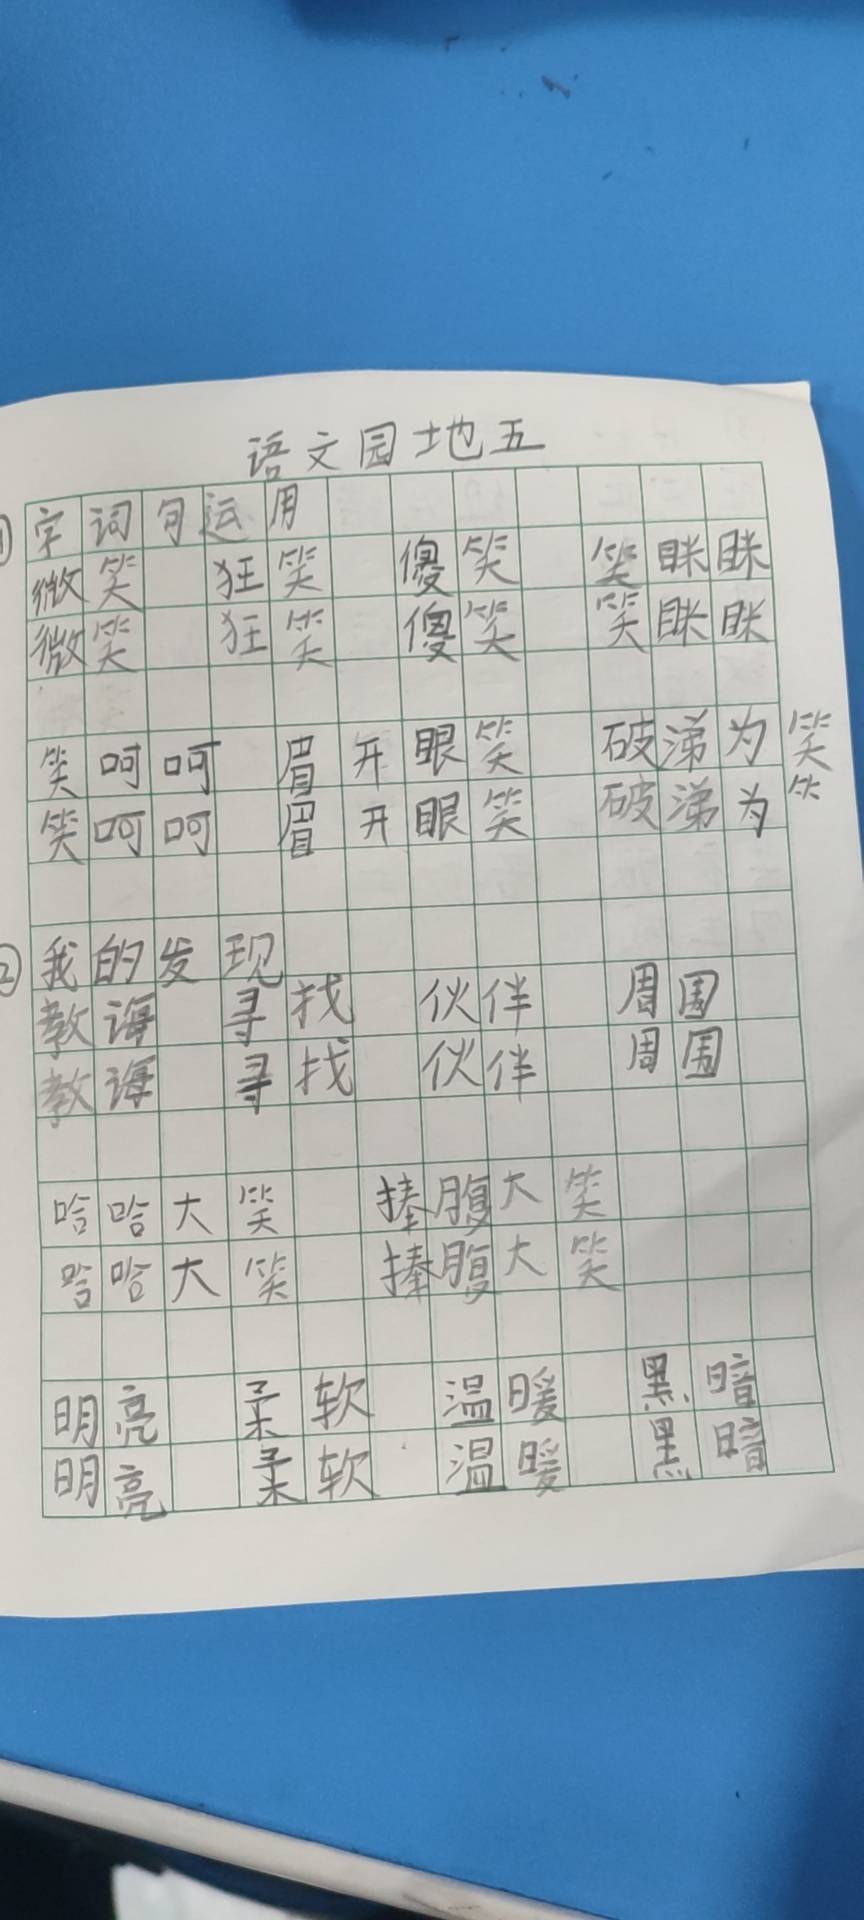 语文园地五
① 字词句运用
微笑 狂笑 傻笑 笑眯眯
微笑 狂笑 傻笑 笑眯眯
笑呵呵 眉开眼笑 破涕为笑
笑呵呵 眉开眼笑 破涕为笑
② 我的发现
教诲 寻找 伙伴 周围
教诲 寻找 伙伴 周围
哈哈大笑 捧腹大笑
哈哈大笑 捧腹大笑
明亮 柔软 温暖 黑暗
明亮 柔软 温暖 黑暗